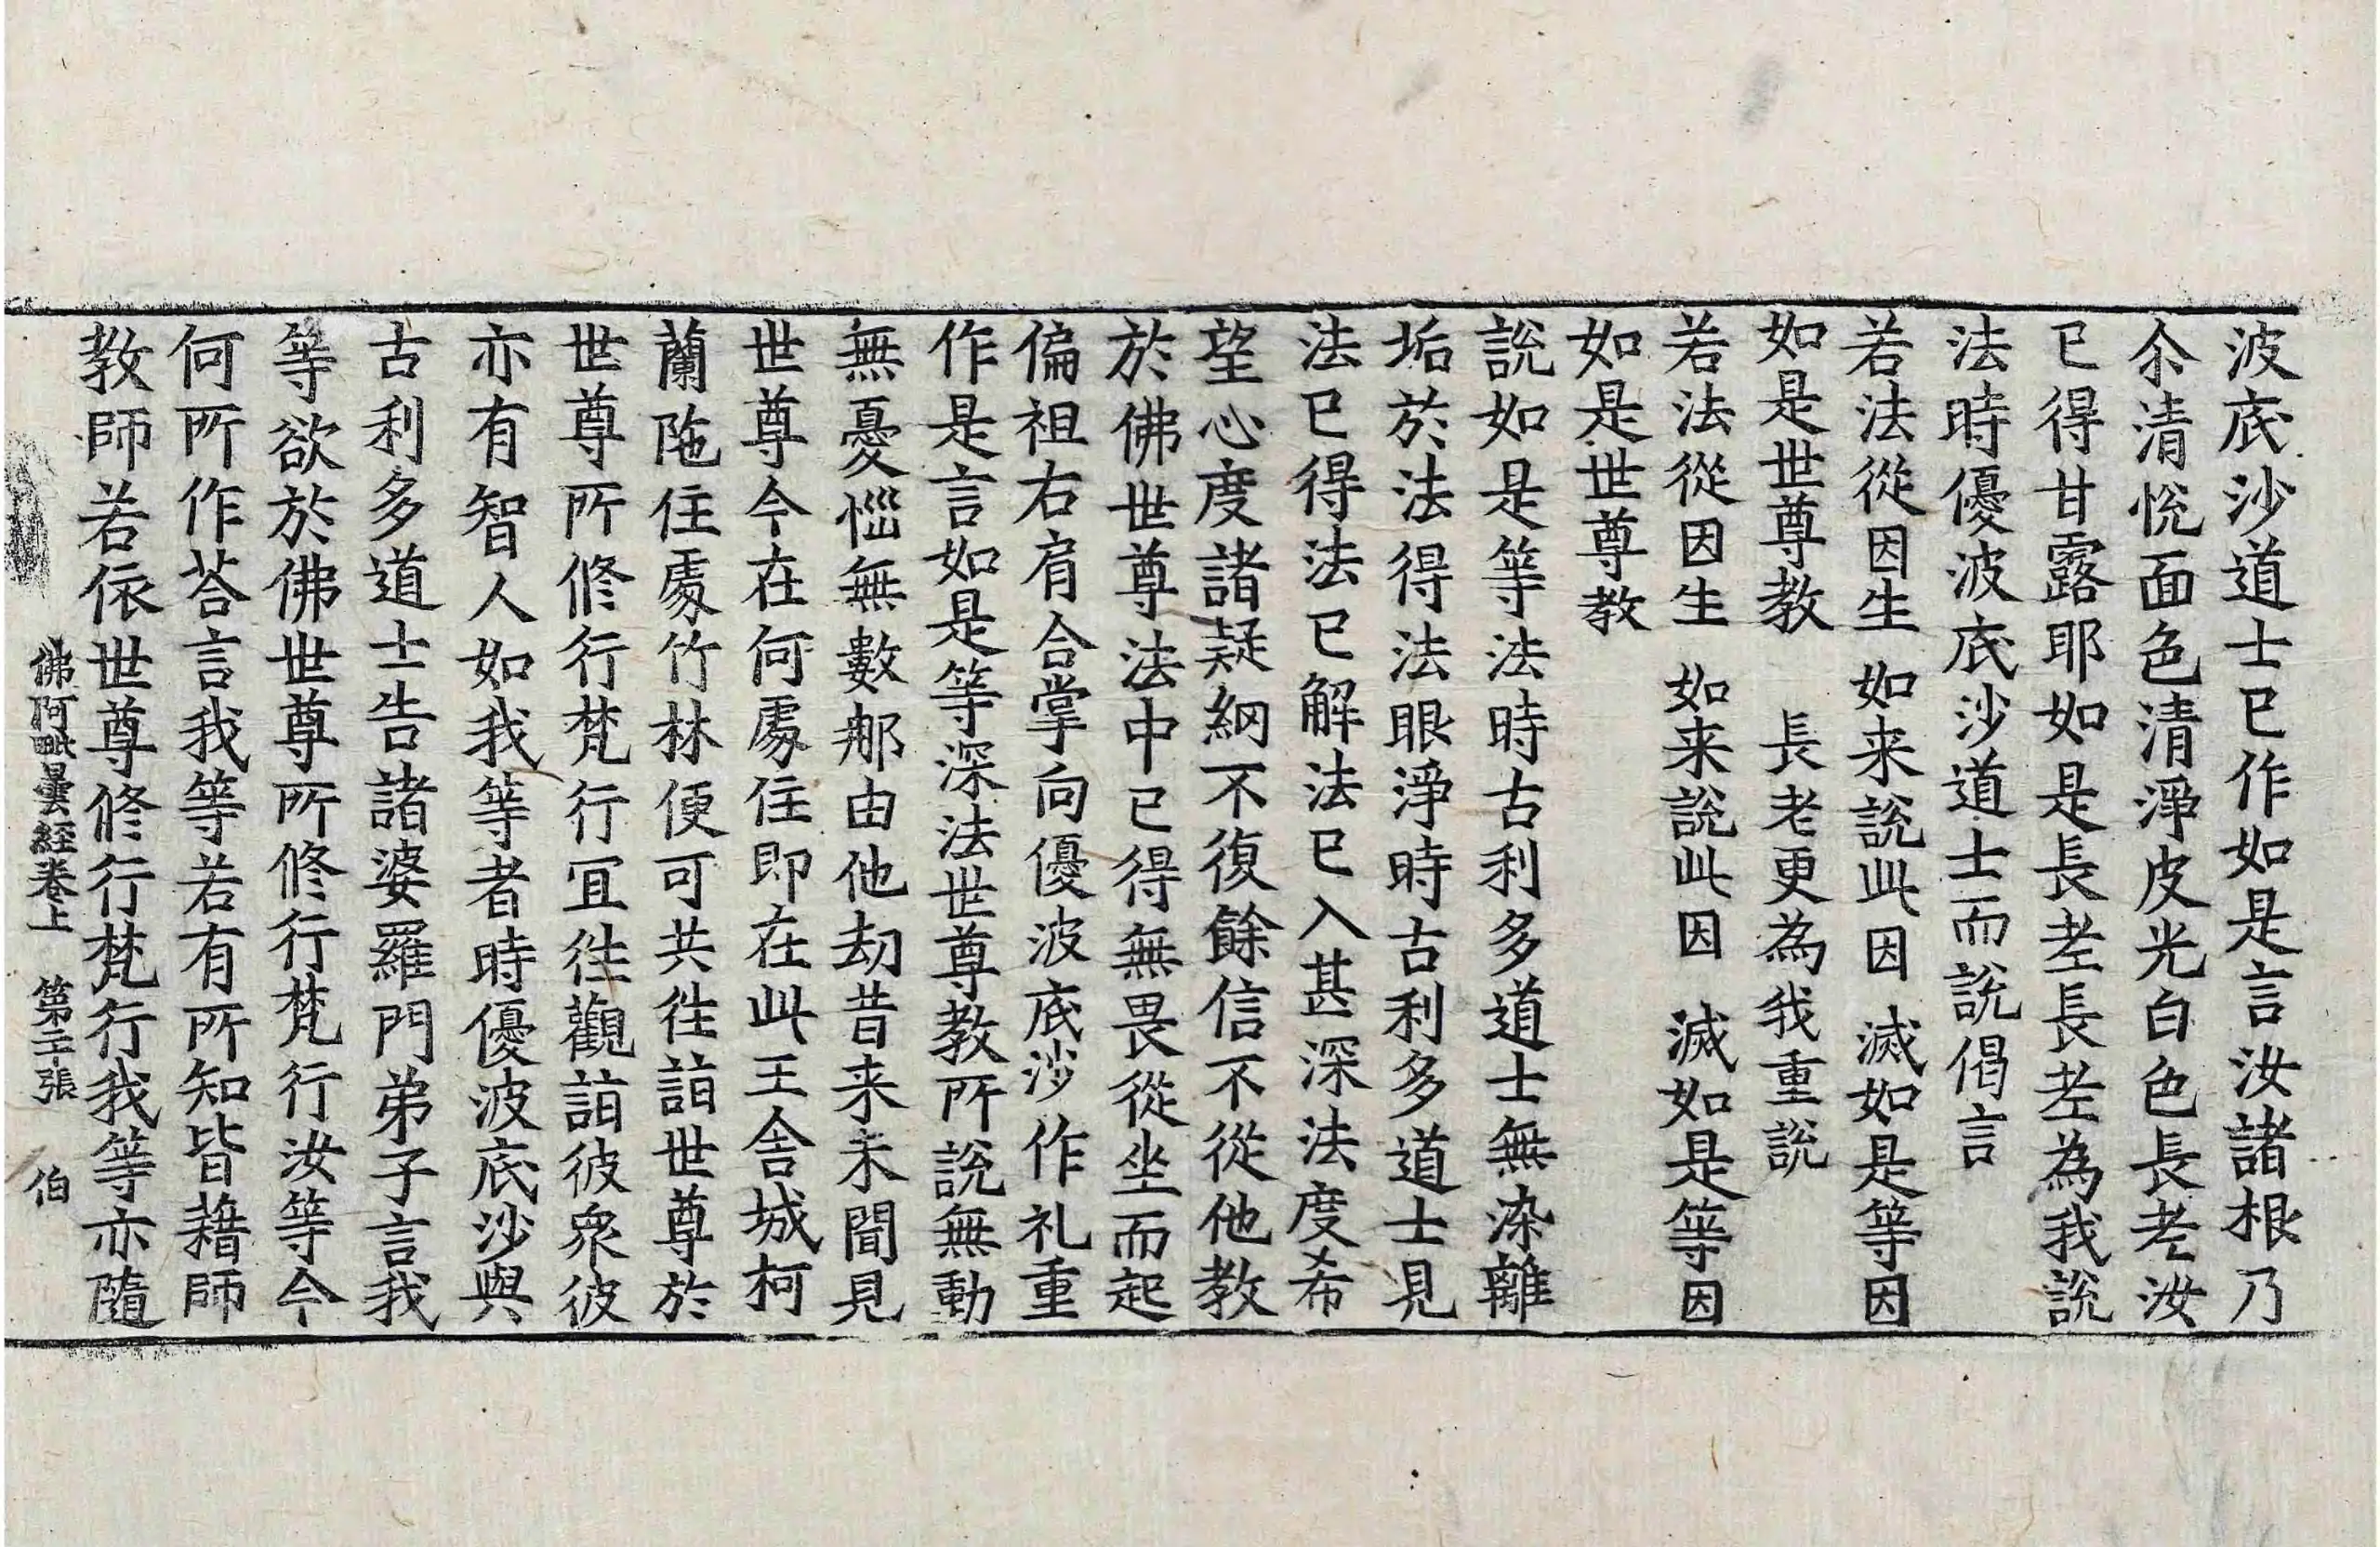 波底沙道士已作如是言汝諸根乃
尒清悦面色清淨皮光白色長老汝
已得甘露耶如是長老長老為我說
法時優波底沙道士而說偈言
若法從因生　如来說此因　滅如是等因
如是世尊教　長老更為我重說
若法從因生　如来說此因　滅如是等因
如是世尊教
說如是等法時古利多道士無染離
垢於法得法眼淨時古利多道士見
法已得法已解法已入甚深法度希
望心度諸疑網不復餘信不從他教
於佛世尊法中已得無畏從坐而起
偏袒右肩合掌向優波底沙作礼重
作是言如是等深法世尊教所說無動
無憂惱無數那由他劫昔来未聞見
世尊今在何處住即在此王舍城柯
蘭陁住處竹林便可共徃詣世尊於
世尊所修行梵行宜徃觀詣彼衆彼
亦有智人如我等者時優波底沙與
古利多道士告諸婆羅門弟子言我
等欲於佛世尊所修行梵行汝等今
何所作荅言我等若有所知皆藉師
教師若依世尊修行梵行我等亦隨
佛阿毗曇經卷上　第二十張　伯